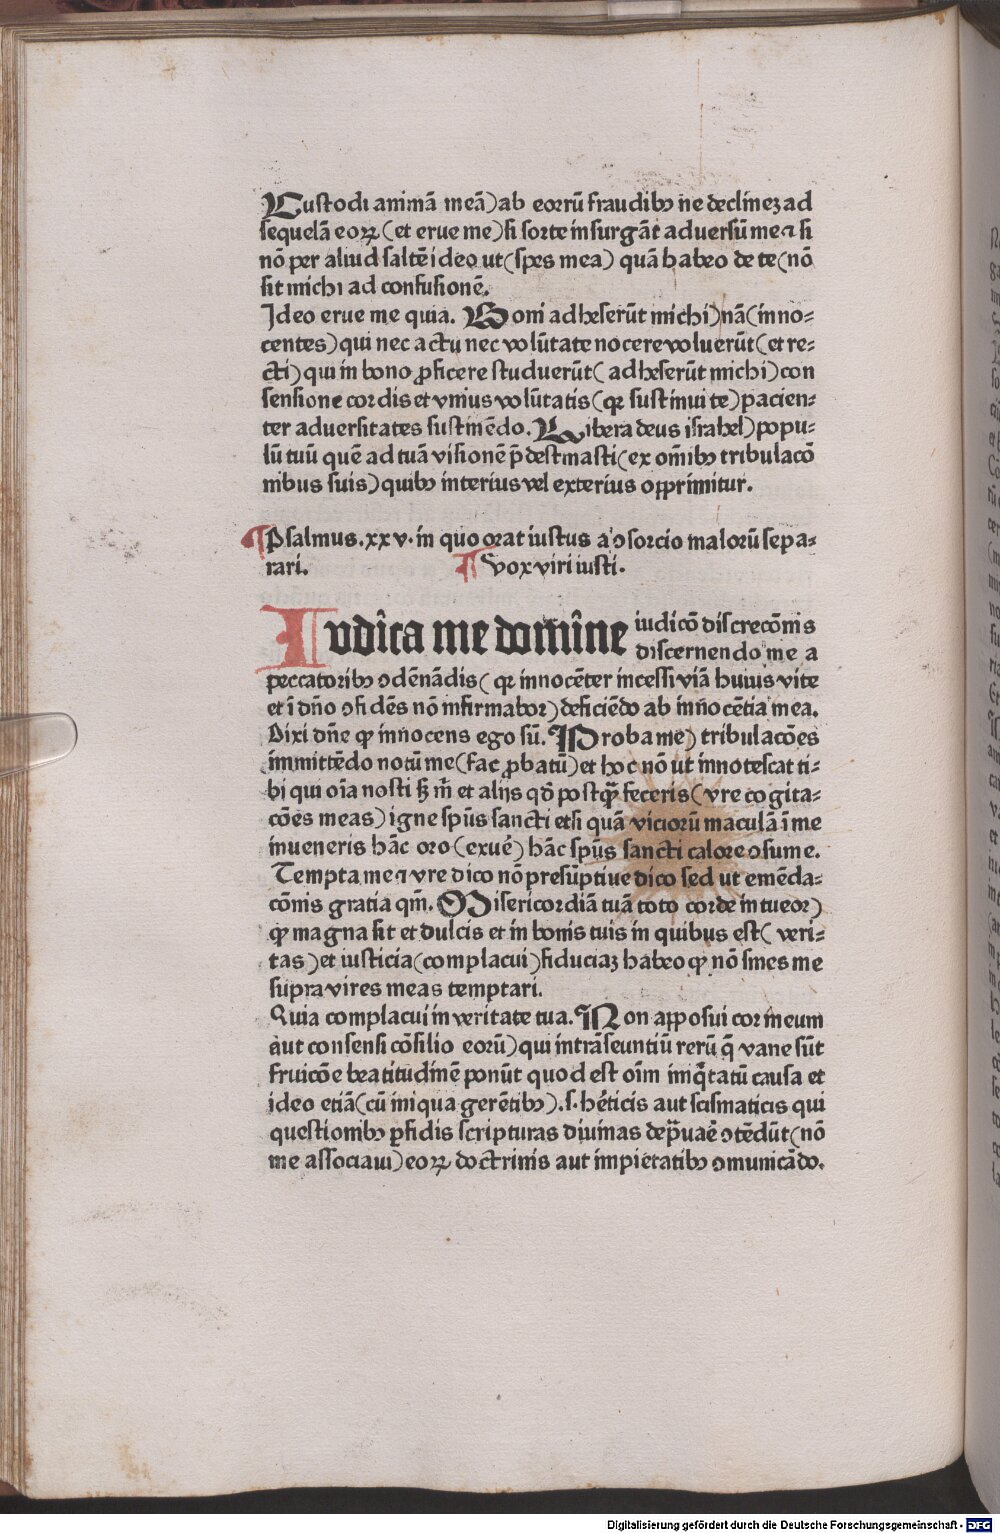 Custodi animā meā) ab eorrū fraudibꝰ ne declinez ad
sequelā eoꝝ (et erue me) si forte insurgāt adversū me ⁊ si
nō per aliud saltē ideo ut (spes mea) quā habeo de te (nō
sit michi ad confusionē.
Ideo erue me quia. Boni adheserūt michi) nā (inno⸗
centes) qui nec actu nec volūtate nocere voluerūt (et re⸗
cti) qui in bono ꝓficere studuerūt (adheserūt michi) con
sensione cordis et vnius volūtatis (qꝛ sustinui te) pacien⸗
ter adversitates sustinēdo. Libera deus israhel) popu⸗
lū tuū quē ad tuā visionē p̄destinasti (ex om̄ibꝰ tribulacō
nibus suis) quibꝰ interius vel exterius opprimitur.
Psalmus. xxv. in quo orat iustus a ꝯsorcio malorū sepa⸗
rari. Vox viri iusti.
Iudica me domine iudicō discrecōnis
discernendo me a
peccatoribꝰ ꝯdēnādis (qꝛ innocēter incessi viā huius vite
et ī dn̄o ꝯfidēs nō infirmabor) deficiēdo ab innocētia mea.
Dixi dn̄e ꝙ innocens ego sū. Proba me) tribulacōes
immittēdo notū me (fac ꝓbatū) et hoc nō ut innotescat ti⸗
bi qui oīa nosti sꝫ m̄ et alijs qd̄ postqꝫ feceris (vre cogita⸗
cōes meas) igne sp̄us sancti etsi quā viciorū maculā ī me
inueneris hāc oro (exuē) hāc sp̄us sancti calore ꝯsume.
Tempta me ⁊ vre dico nō presūptiue dico sed ut emēda⸗
cōnis gratia qm̄. Misericordiā tuā toto corde intueor)
ꝙ magna sit et dulcis et in bonis tuis in quibus est (veri⸗
tas) et iusticia (complacui) fiduciaꝫ habeo ꝙ nō sines me
supra vires meas temptari.
Quia complacui in veritate tua. Non apposui cor meum
aut consensi cōsilio eorū) qui intrāseuntiū rerū q̄ vane sūt
fruicōe beatitudinē ponūt quod est oīm iniq̄tatū causa et
ideo etiā (cū iniqua gerētibꝰ) .s. hēticis aut scismaticis qui
questionibꝰ ꝑfidis scripturas diuinas dep̄uaē ꝯtēdūt (nō
me associaui) eoꝝ doctrinis aut impietatibꝰ ꝯmunicādo.
Digitalisierung gefördert durch die Deutsche Forschungsgemeinschaft - DFG